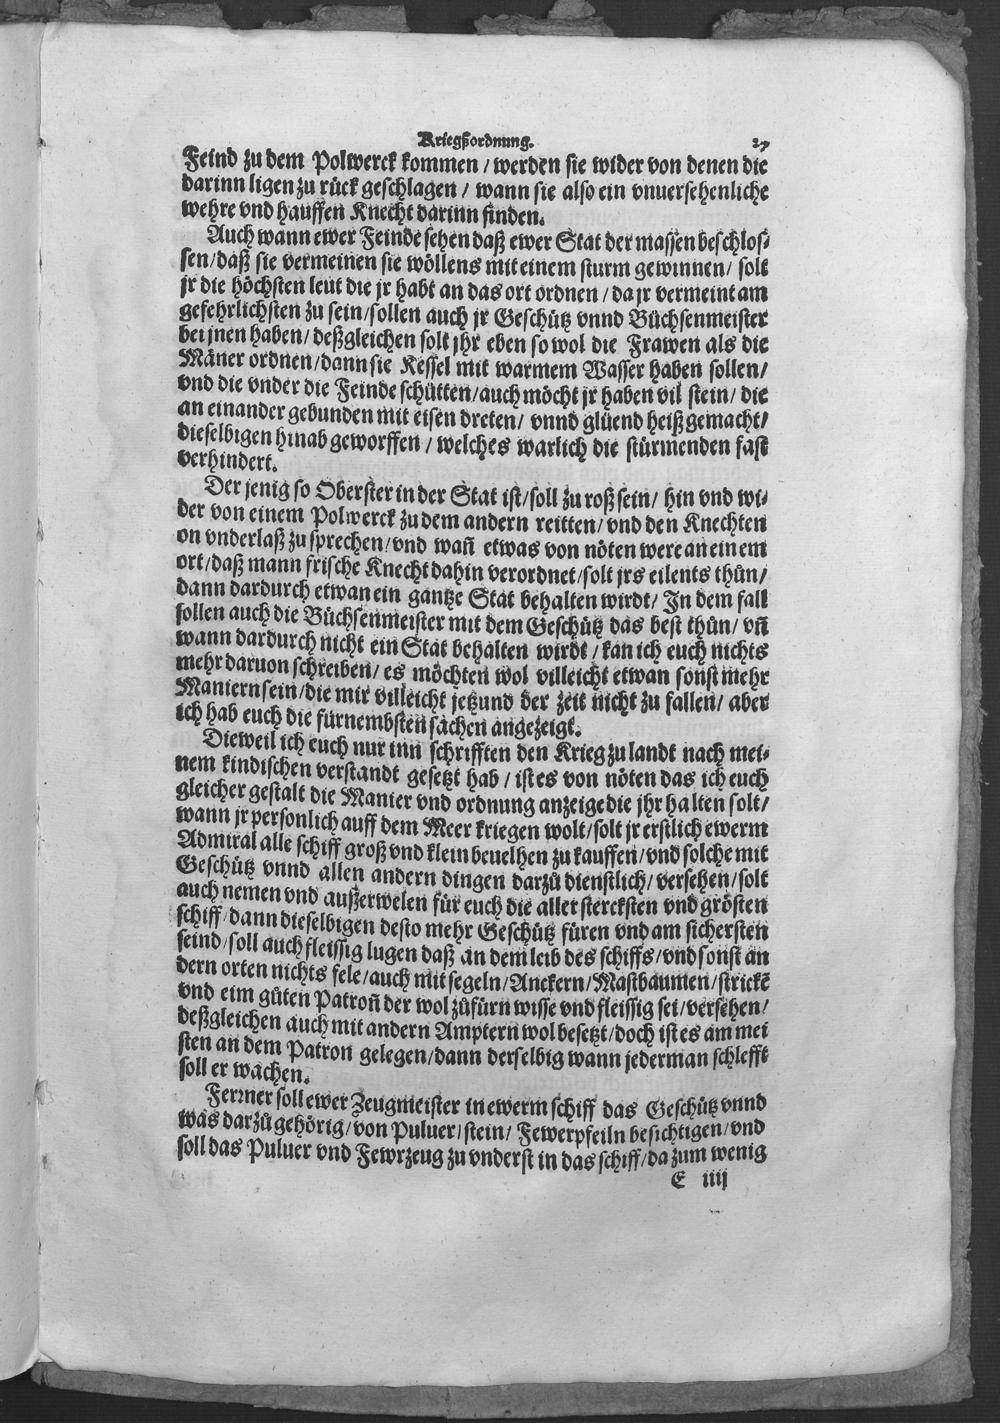 Kriegßordnung. 27
Feind zu dem Polwerck kommen / werden sie wider von denen die
darinn ligen zu rück geschlagen / wann sie also ein vnuersehenliche
wehre vnd hauffen Knecht darinn finden.
Auch wann ewer Feinde sehen daß ewer Stat der massen beschlos-
sen / daß sie vermeinen sie wöllens mit einem sturm gewinnen / solt
jr die höchsten leut die jr habt an das ort ordnen / da jr vermeint am
gefehrlichsten zu sein / sollen auch jr Geschütz vnnd Büchsenmeister
bei jnen haben / deßgleichen solt jhr eben so wol die Frawen als die
Mäner ordnen / dann sie Kessel mit warmem Wasser haben sollen /
vnd die vnder die Feinde schütten / auch möcht jr haben vil stein / die
an einander gebunden mit eisen dreten / vnnd glüend heiß gemacht /
dieselbigen hinab geworffen / welches warlich die stürmenden fast
verhindert.
Der jenig so Oberster in der Stat ist / soll zu roß sein / hin vnd wi-
der von einem Polwerck zu dem andern reitten / vnd den Knechten
on vnderlaß zu sprechen / vnd wañ etwas von nöten were an einem
ort / daß mann frische Knecht dahin verordnet / solt jrs eilents thůn /
dann dardurch etwan ein gantze Stat behalten wirdt / In dem fall
sollen auch die Büchsenmeister mit dem Geschütz das best thůn / vñ
wann dardurch nicht ein Stat behalten wirdt / kan ich euch nichts
mehr daruon schreiben / es möchten wol villeicht etwan sonst mehr
Maniern sein / die mir villeicht jetzund der zeit nicht zu fallen / aber
ich hab euch die fürnembsten sachen angezeigt.
Dieweil ich euch nur inn schrifften den Krieg zu landt nach mei-
nem kindischen verstandt gesetzt hab / ist es von nöten das ich euch
gleicher gestalt die Manier vnd ordnung anzeige die jhr halten solt /
wann jr personlich auff dem Meer kriegen wolt / solt jr erstlich ewerm
Admiral alle schiff groß vnd klein beuelhen zu kauffen / vnd solche mit
Geschütz vnnd allen andern dingen darzů dienstlich / versehen / solt
auch nemen vnd außerwelen für euch die aller stercksten vnd grösten
schiff / dann dieselbigen desto mehr Geschütz füren vnd am sichersten
seind / soll auch fleissig lugen daß an dem leib des schiffs / vnd sonst an
dern orten nichts fele / auch mit segeln / Anckern / Mastbaumen / strickē
vnd eim gůten Patroñ der wol zůfürn wisse vnd fleissig sei / versehen /
deßgleichen auch mit andern Amptern wol besetzt / doch ist es am mei
sten an dem Patron gelegen / dann derselbig wann jederman schlefft
soll er wachen.
Ferrner soll ewer Zeugmeister in ewerm schiff das Geschütz vnnd
was darzů gehörig / von Puluer / stein / Fewerpfeiln besichtigen / vnd
soll das Puluer vnd Fewrzeug zu vnderst in das schiff / da zum wenig
E iiij